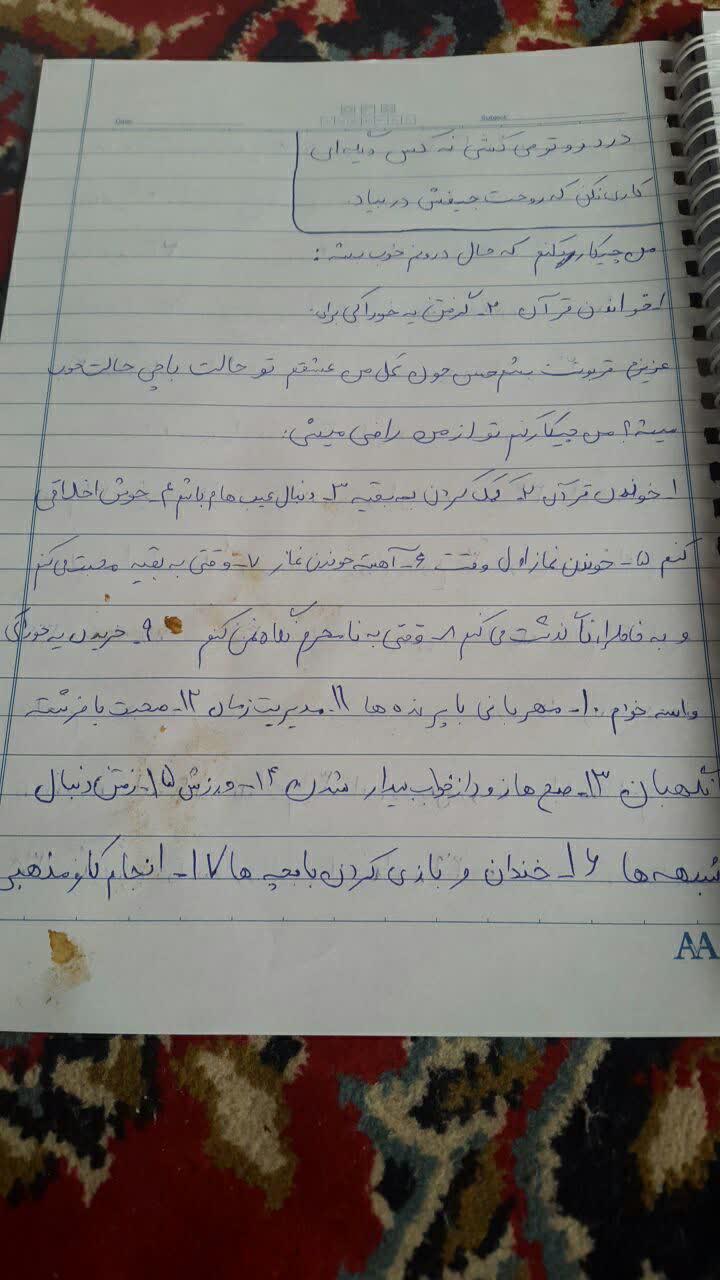 Date: Subject:
درد رو تو می کشی نه کس دیگه ای
کاری نکن که روحت جیغش در بیاد.
من چیکار میکنم که حال درونم خوب میشه:
۱- خواندن قرآن ۲- گرفتن یه خوراکی برای
عزیزم قربونت بشم حس حول گل من عشقم تو حالت با چی حالت خوب
میشه؟ من چیکار کنم تو از من راضی میشی:
۱- خوندن قرآن ۲- کمک کردن به بقیه ۳- دنبال عیب هام باشم ۴- خوش اخلاقی
کنم ۵- خوندن نماز اول وقت ۶- آهسته خوندن نماز ۷- وقتی به بقیه محبت می کنم
و به خاطر گذشت می کنم ۸- وقتی به نامحرم نگاه نمی کنم ۹- خریدن یه خوراکی
واسه خودم ۱۰- مهربانی با پرنده ها ۱۱- مدیریت زمان ۱۲- صحبت با فرشته
نگهبان ۱۳- صبح ها زود از خواب بیدار شدن ۱۴- ورزش ۱۵- رفتن دنبال
شبهه ها ۱۶- خندان و بازی کردن با بچه ها ۱۷- انجام کار مذهبی
AA